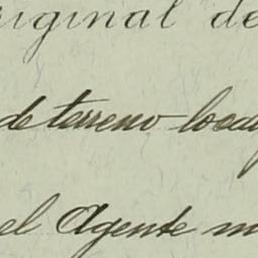 riginal de
de terreno loca
el Agente m